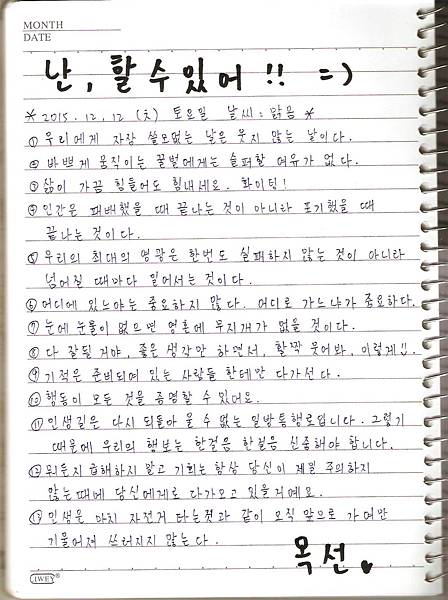 MONTH
DATE
난, 할 수 있어 !! =)
* 2015. 12. 12 (六) 토요일 날씨 : 맑음 *
① 우리에게 가장 쓸모없는 날은 웃지 않는 날이다.
② 바쁘게 움직이는 꿀벌에게는 슬퍼할 여유가 없다.
③ 삶이 가끔 힘들어도 힘내세요. 화이팅!
④ 인간은 패배했을 때 끝나는 것이 아니라 포기했을 때
끝나는 것이다.
⑤ 우리의 최대의 영광은 한번도 실패하지 않는 것이 아니라
넘어질 때마다 일어서는 것이다.
⑥ 어디에 있느냐는 중요하지 않다. 어디로 가느냐가 중요하다.
⑦ 눈에 눈물이 없으면 영혼에 무지개가 없을 것이다.
⑧ 다 잘될 거야, 좋은 생각만 하면서, 활짝 웃어봐, 이렇게!!.
⑨ 기적은 준비되어 있는 사람들 한테만 다가선다.
⑩ 행동이 모든 것을 증명할 수 있어요.
⑪ 인생길은 다시 되돌아 올 수 없는 일방통행로입니다. 그렇기
때문에 우리의 행보는 한걸음 한걸음 신중해야 합니다.
⑫ 뭐든지 급해하지 말고 기회는 항상 당신이 제일 주의하지
않는때에 당신에게로 다가오고 있을거예요.
⑬ 인생은 마치 자전거 타는것과 같이 오직 앞으로 가여만
기울어져 쓰러지지 않는다.
목선.
IWEY®